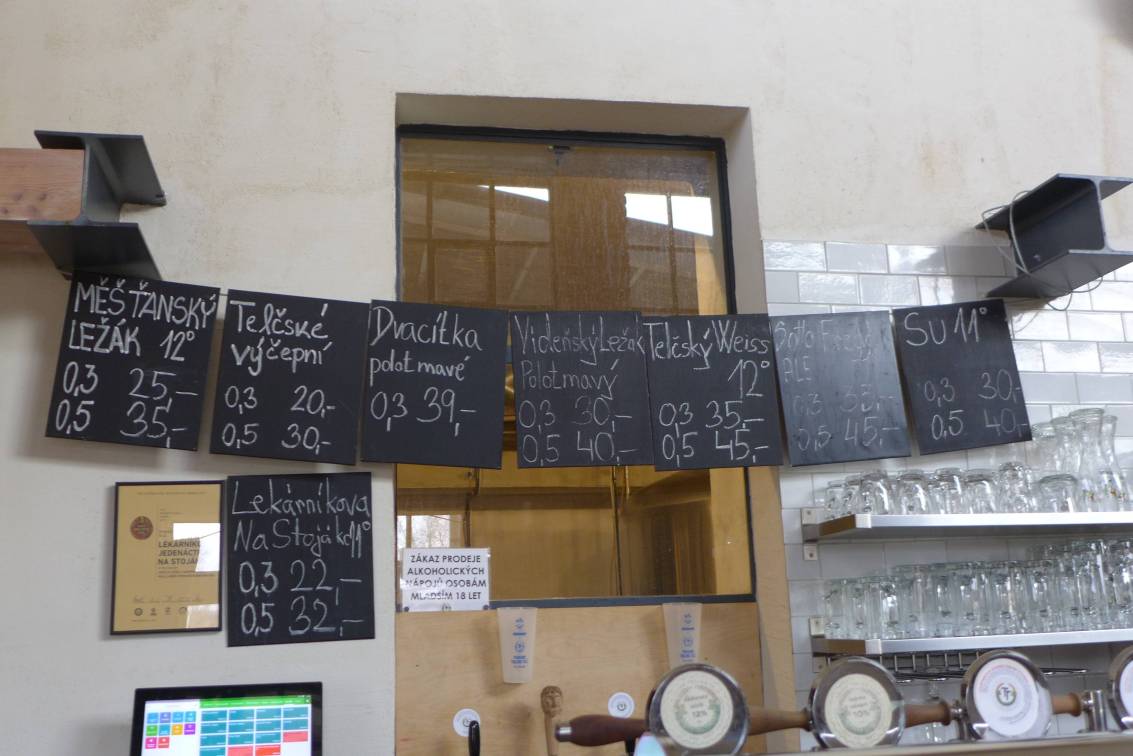 MĚŠŤANSKÝ
LEŽÁK 12°
0,3 25,-
0,5 35,-
Telčské
výčepní
0,3 20,-
0,5 30,-
Dvacítka
polotmavé
0,3 39,-
Vídeňský Ležák
Polotmavý
0,3 30,-
0,5 40,-
Telčský Weiss
12°
0,3 35,-
0,5 45,-
ALE
0,3 35,-
0,5 45,-
SU 11°
0,3 30,-
0,5 40,-
LEKÁRNÍKOVA
JEDENÁCTKA
NA STOJÁKA
Lekárníkova
Na Stojáka 11°
0,3 22,-
0,5 32,-
ZÁKAZ PRODEJE
ALKOHOLICKÝCH
NÁPOJŮ OSOBÁM
MLADŠÍM 18 LET
12%
10%